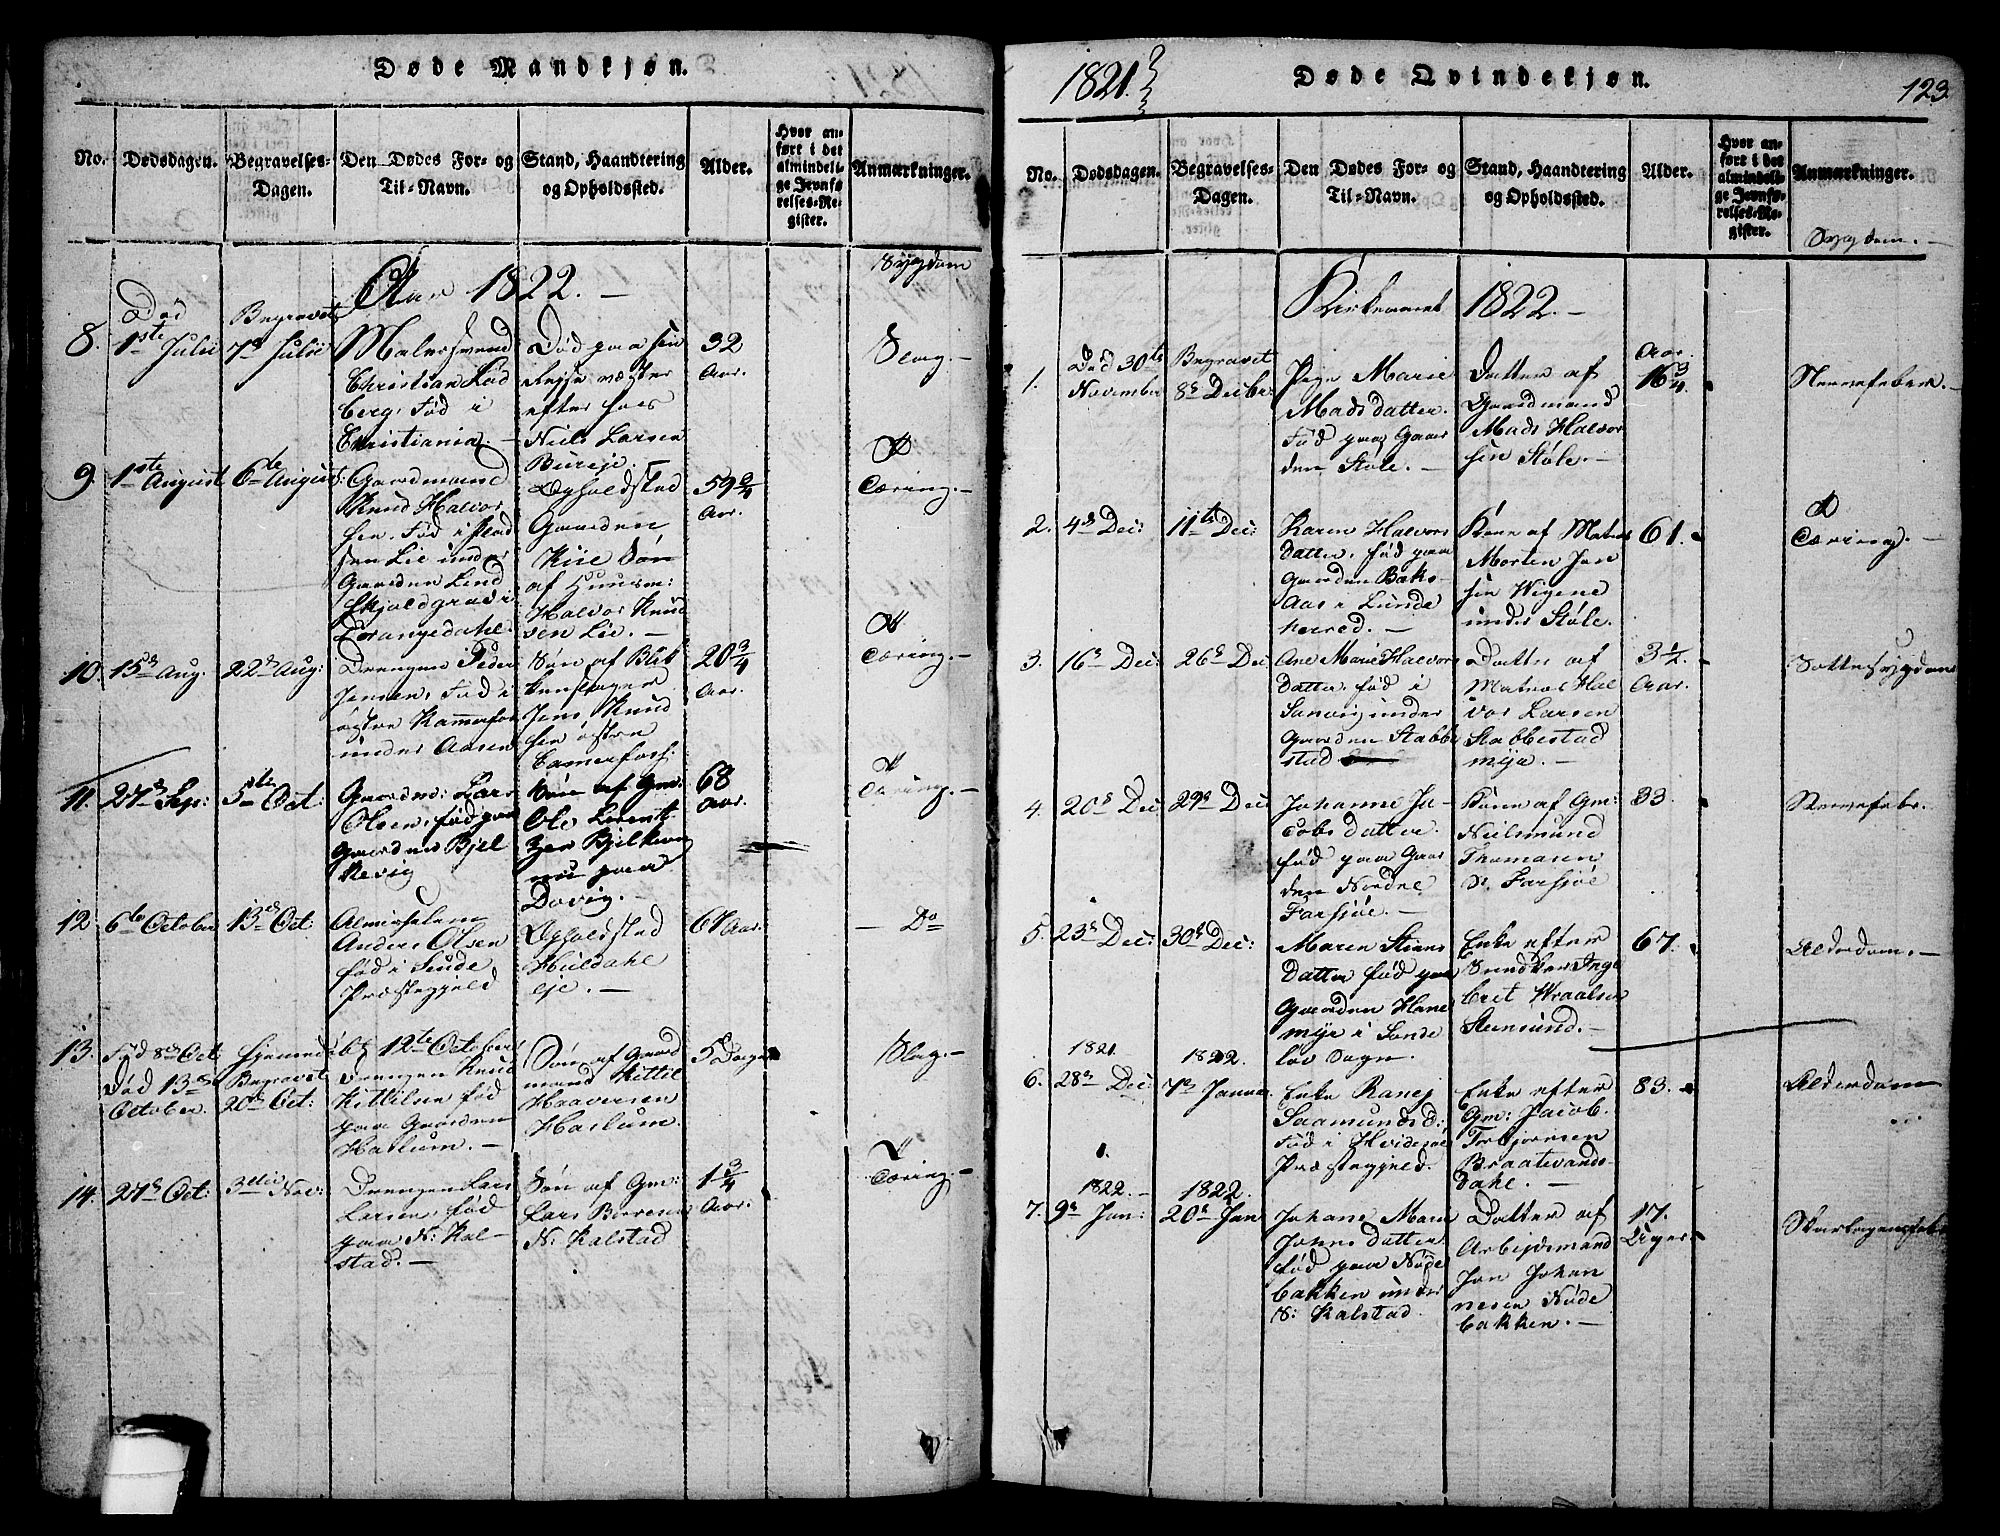 Døde Mandkjøn.
No.
Dødsdagen.
Begravelses-
Dagen.
Den Dødes For- og
Til-Navn.
Stand, Haandtering
og Opholdssted.
Alder.
Hvor an-
ført i det
almindeli-
ge Jevnfø
relses-Re-
gister.
Anmærkninger.
Sygdom
Aar 1822.
8.
Død
1ste Julii
Begravet
7de Julii
Malersvend
Christian Lød
berg, Fød i
Christiania.
Død paa sin
Rejse
efter hos
Niels Larsen
32
Aar.
Slag.
9.
1ste August
6te August
Gaardmand
Knud Halvor
sen. Fød i
sen Lie under
Gaarden Lind
Skjoldgrav i
Drangedahl.
Opholdsted
Gaarden
Kiie Søn
af Huusm:
Halvor Knud
sen Lie.
59 3/4
Aar.
Tæring.
10.
15de Aug.
22de Aug:
Drengen Peder
Jensen, Fød i
østre Kammerfos
under Aasen
Søn af Blik
kenslager
Jens Knud
sen østre
Camerfos:
20 3/4
Aar.
Tæring.
11.
27de Sep:
5te Oct:
Gaardmd: Lars
Olsen, fød paa
Gaarden Bjel
kevig
Søn af Gm:
Ole Lorent
zen Bjelkevig
nu paa
Dovig.
68
Aar.
Tæring.
12.
6te October
13de Oct:
Almisselem
Anders Olsen
fød i
Præstegjeld
Opholdsted
Huldahl
eje.
61 Aar.
Do
13.
Fød 8de Oct
Død 13de
October.
Hjemmedøbt 12te October
Begravet
20de Oct:
Drengen Knud
Kittilsen fød
paa Gaarden
Haslum.
Søn af Gaard
mand Kittil
Haaversen
Haslum.
5 Dage
Slag.
14.
27de Oct:
3die Nov:
Drengen Lars
Larsen, fød
paa N: Kal-
stad.
Søn af Gm:
Lars
N: Kalstad
1 3/4
Aar.
Tæring.
1821.
Døde Qvindekjøn.
123.
No.
Dødsdagen.
Begravelses-
Dagen.
Den Dødes For- og
Til-Navn.
Stand, Haandtering
og Opholdssted.
Alder.
Hvor an-
ført i det
almindeli-
ge Jevnfø-
relses-Re-
gister.
Anmærkninger.
Sygdom.
Kirkeaaret 1822.
1.
Død 30te
November
Begravet
8de Decbr:
Pige Marie
Madsdatter.
Fød paa Gaar
den Støle.
Datter af
Gaardmand
Mads Halvor
sen Støle.
Aar.
16 3/4
Nervefeber.
2.
4de Dec:
11te Dec:
Karen Halvors
datter, fød paa
Gaarden Baks-
Aas i Lunde
herred.
Kone af Matros
Morten Jan
sen Wigene
under Støle.
61.
Tæring.
3.
16de Dec:
26de Dec
Ane Marie Halvors
Datter, fød i
Sanvig, under
Gaarden Stabbe
stad
Datter af
Matros Hal
vor Larsen
Stabbestad
myr.
3 1/2.
Aar.
Sottesygdom
4.
20de Dec
29de Dec
Johanne Ja-
cobs datter.
fød paa Gaar
den Nordre
Farsjøe.
Kone af Gm:
Nielsmund
Thomasen
N. Farsjøe
33.
Nervefebr.
5.
23de Dec:
30te Dec:
Maren Stians
Datter fød paa
Gaarden Hane
myr i Sonde
løv Sogn.
Enke efter
Inge
bret Wraalsen
Stensund.
67.
Alderdom.
6.
1821.
28de Dec:
1822.
7de Januar.
Enke Ranej
Saamundsd:
Fød i Hvidesøe
Præstegjeld.
Enke efter
Gm: Jacob
Torbjørnsen
Braatevands-
dahl.
83.
Alderdom
7.
1822.
9de Jan:
1822.
20de Jan
Johane Marie
Johnsdatter
fød paa Nøge
bakken under
N: Kalstad.
Datter af
Arbejdsmand
Jon Johan
nesen Nøde
bakken.
17.
Uger
Skarlagensfebr